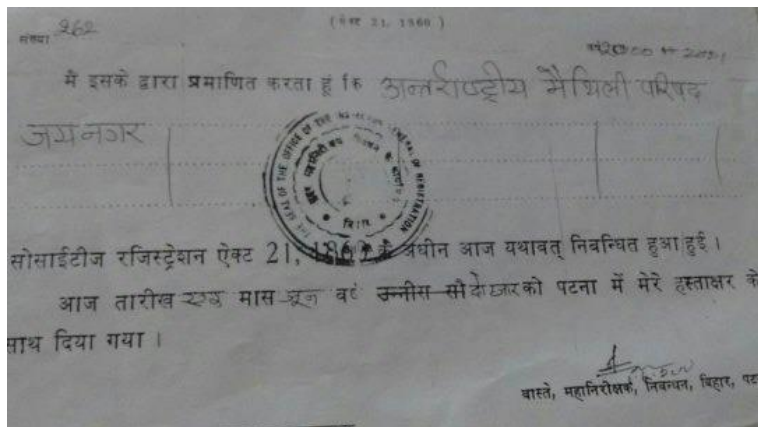 ( ऐक्ट 21, 1860 )
संख्या 262
2000 2001
मै इसके द्वारा प्रमाणित करता हूं कि अन्तर्राष्ट्रीय मैथिली परिषद
जयनगर
THE SEAL OF THE OFFICE OF THE GENERAL OF REGISTRATION
बिहार
सोसाईटीज रजिस्ट्रेशन ऐक्ट 21, 1860 के अधीन आज यथावत् निबन्धित हुआ हुई ।
आज तारीख एक मास जून वर्ष उन्नीस सौ दो हजार को पटना में मेरे हस्ताक्षर के
साथ दिया गया ।
वास्ते, महानिरीक्षक, निबन्धन, बिहार, पट